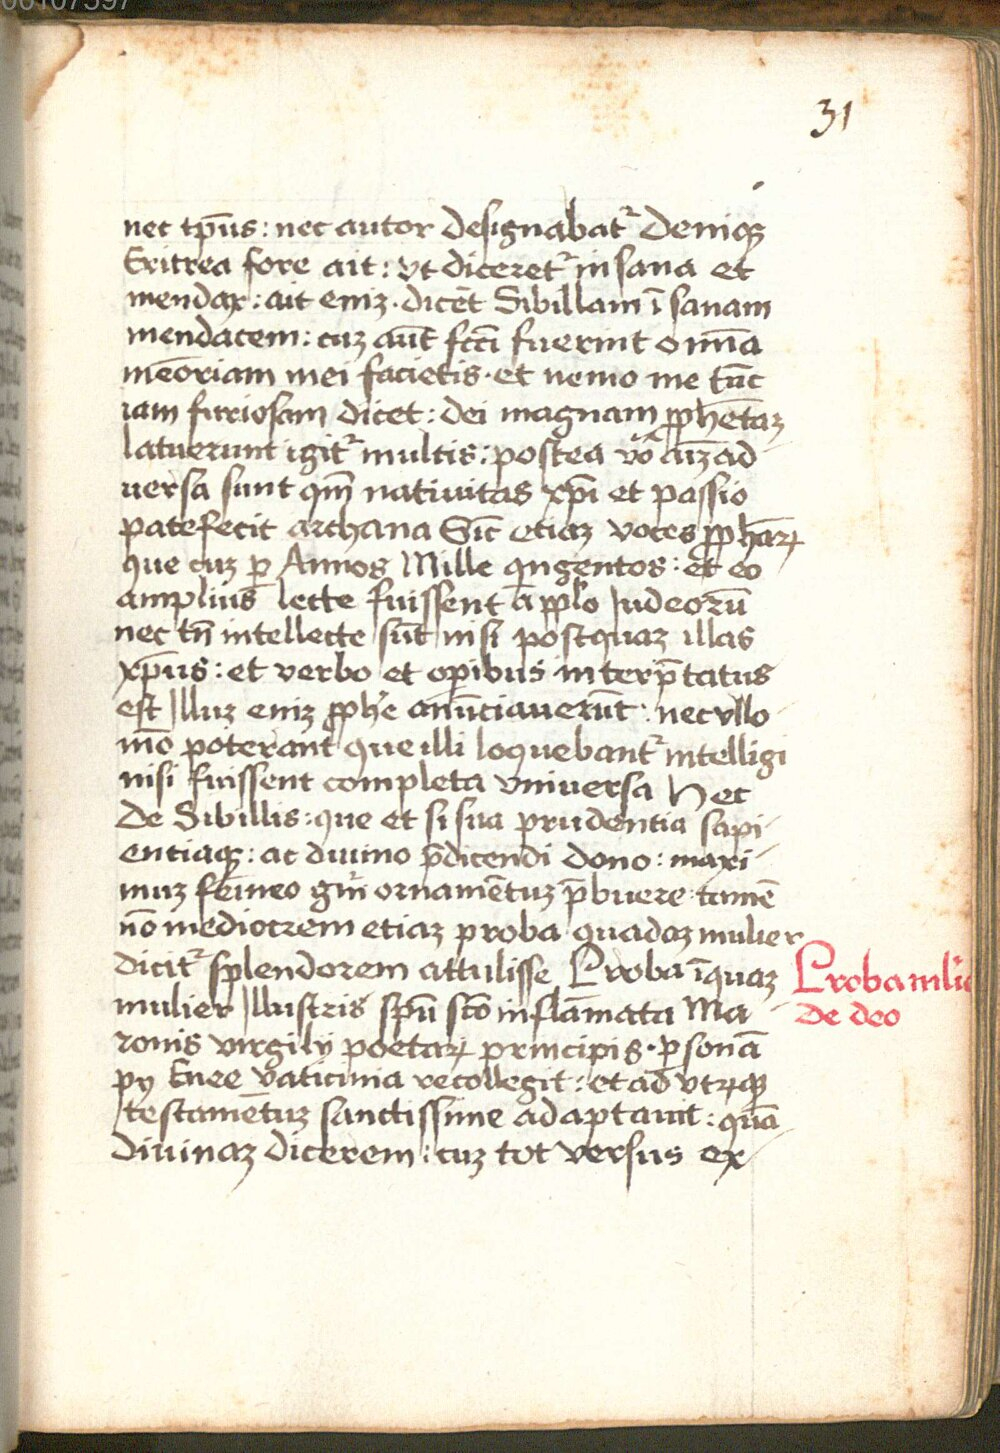 00107597
31
nec tp̄us: nec autor designabat᷑ Deniqꝫ
Eritrea fore ait: vt diceret᷑ insana et
mendax: ait eniꝫ. dicēt Sibillam ī sanam
mendacem: cuꝫ aūt fcti fuerint om̄ia
mēoriam mei facietis. et nemo me tūc
iam furiosam dicet: dei magnam ꝓphetaꝫ
latuerunt igit᷑ multis: postea vo cuꝫ ad
uersa sunt qm̄ natiuitas xp̄i et passio
patefecit archana Sic̄ etiaꝫ voces ꝓphaꝝ
que cuꝫ ꝑ Annos Mille qngentos: et eo
amplius lecte fuissent a pp̄lo Judeorū
nec tn̄ intellecte sūt nisi postquaꝫ illas
xp̄us: et verbo et oꝑibus interp̄tatus
est Illuꝫ eniꝫ ꝓphe anūciauerūt: nec vllo
mō poterant que illi loquebant᷑ intelligi
nisi fuissent completa vniuersa Hec
De Sibillis: que et si sua prudentia sapi
entiaqꝫ: ac diuino p̄dicendi dono: maxi
muꝫ femīneo gn̄i ornamētuꝫ p̄buere tamē
nō mediocrem etiaꝫ proba quadaꝫ mulier
dicit᷑ splendorem attulisse Proba īquaꝫ
mulier Illustris spū scō inflāmata Ma
ronis virgilij poetaꝝ principis. ꝑsonā
py Enee vaticinia recollegit: et ad vtrꝫqꝫ
testamētuꝫ sanctissime adaptauit: quā
Diuinaꝫ dicerem: cuꝫ tot versus ex
Proba mlie
De deo